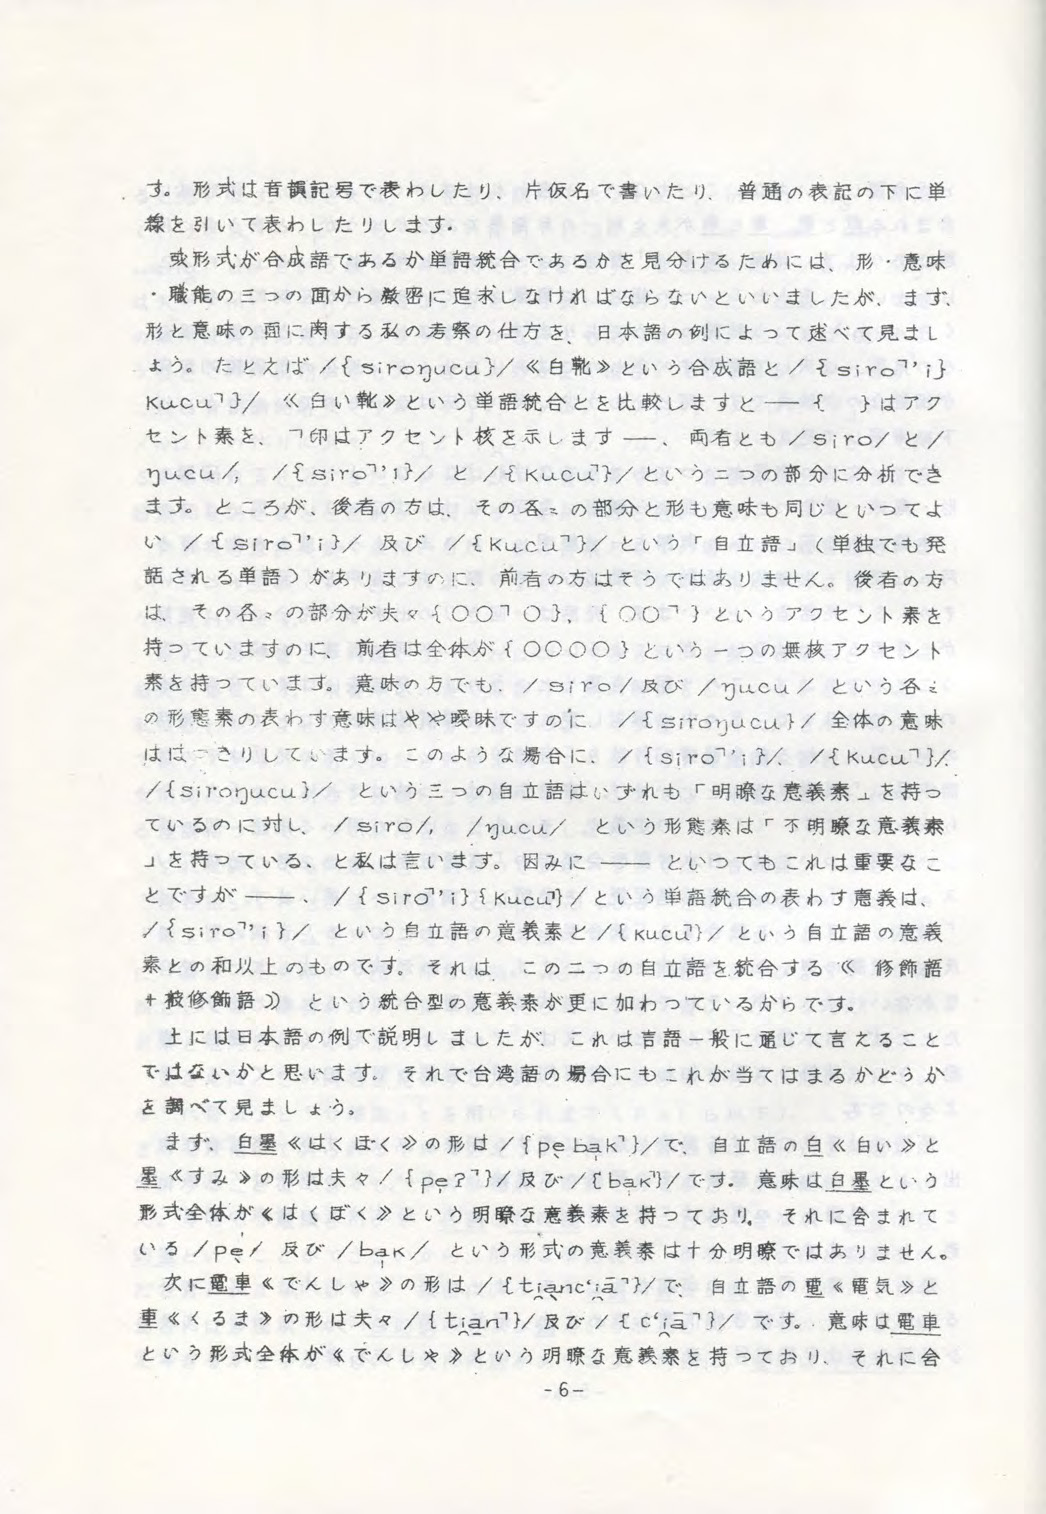 す。形式は音韻記号で表わしたり、片仮名で書いたり、普通の表記の下に単
線を引いて表わしたりします。
或形式が合成語であるか単語統合であるかを見分けるためには、形・意味
・職能の三つの面から厳密に追求しなければならないといいましたが、まず、
形と意味の面に関する私の考察の仕方を、日本語の例によって述べて見まし
ょう。たとえば /{siroŋucu}/ 《白靴》という合成語と /{siro˥'i}
{kucu˥}/ 《白い靴》という単語統合とを比較しますと――{ }はアク
セント素を、˥印はアクセント核を示します――、両者とも /siro/ と /
ŋucu/, /{siro˥'i}/ と /{kucu˥}/ という二つの部分に分析でき
ます。ところが、後者の方は、その各々の部分と形も意味も同じといつてよ
い /{siro˥'i}/ 及び /{kucu˥}/ という「自立語」(単独でも発
話される単語)がありますのに、前者の方はそうではありません。後者の方
は、その各々の部分が夫々{○○˥○}, {○○˥}というアクセント素を
持っていますのに、前者は全体が{○○○○}という一つの無核アクセント
素を持っています。意味の方でも、/siro/ 及び /ŋucu/ という各々
の形態素の表わす意味はやや曖昧ですのに、/{siroŋucu}/ 全体の意味
ははっきりしています。このような場合に、/{siro˥'i}/, /{kucu˥}/,
/{siroŋucu}/ という三つの自立語はいずれも「明瞭な意義素」を持っ
ているのに対し、/siro/, /ŋucu/ という形態素は「不明瞭な意義素
」を持っている、と私は言います。因みに――といつてもこれは重要なこ
とですが――、/{siro˥'i}{kucu˥}/ という単語統合の表わす意義は、
/{siro˥'i}/ という自立語の意義素と /{kucu˥}/ という自立語の意義
素との和以上のものです。それは、この二つの自立語を統合する《修飾語
+被修飾語》という統合型の意義素が更に加わつているからです。
上には日本語の例で説明しましたが、これは言語一般に通じて言えること
ではないかと思います。それで台湾語の場合にもこれが当てはまるかどうか
を調べて見ましょう。
まず、白墨《はくぼく》の形は /{pẹbạk˥}/ で、自立語の白《白い》と
墨《すみ》の形は夫々 /{pẹʔ˥}/ 及び /{bạk˥}/ です。意味は白墨という
形式全体が《はくぼく》という明瞭な意義素を持っており、それに含まれて
いる /pẹ/ 及び /bạk/ という形式の意義素は十分明瞭ではありません。
次に電車《でんしゃ》の形は /{ti̯anc‘i̯ā˥}/ で、自立語の電《電気》と
車《くるま》の形は夫々 /{ti̯an˥}/ 及び /{c‘i̯ā˥}/ です。意味は電車
という形式全体が《でんしゃ》という明瞭な意義素を持っており、それに含
-6-